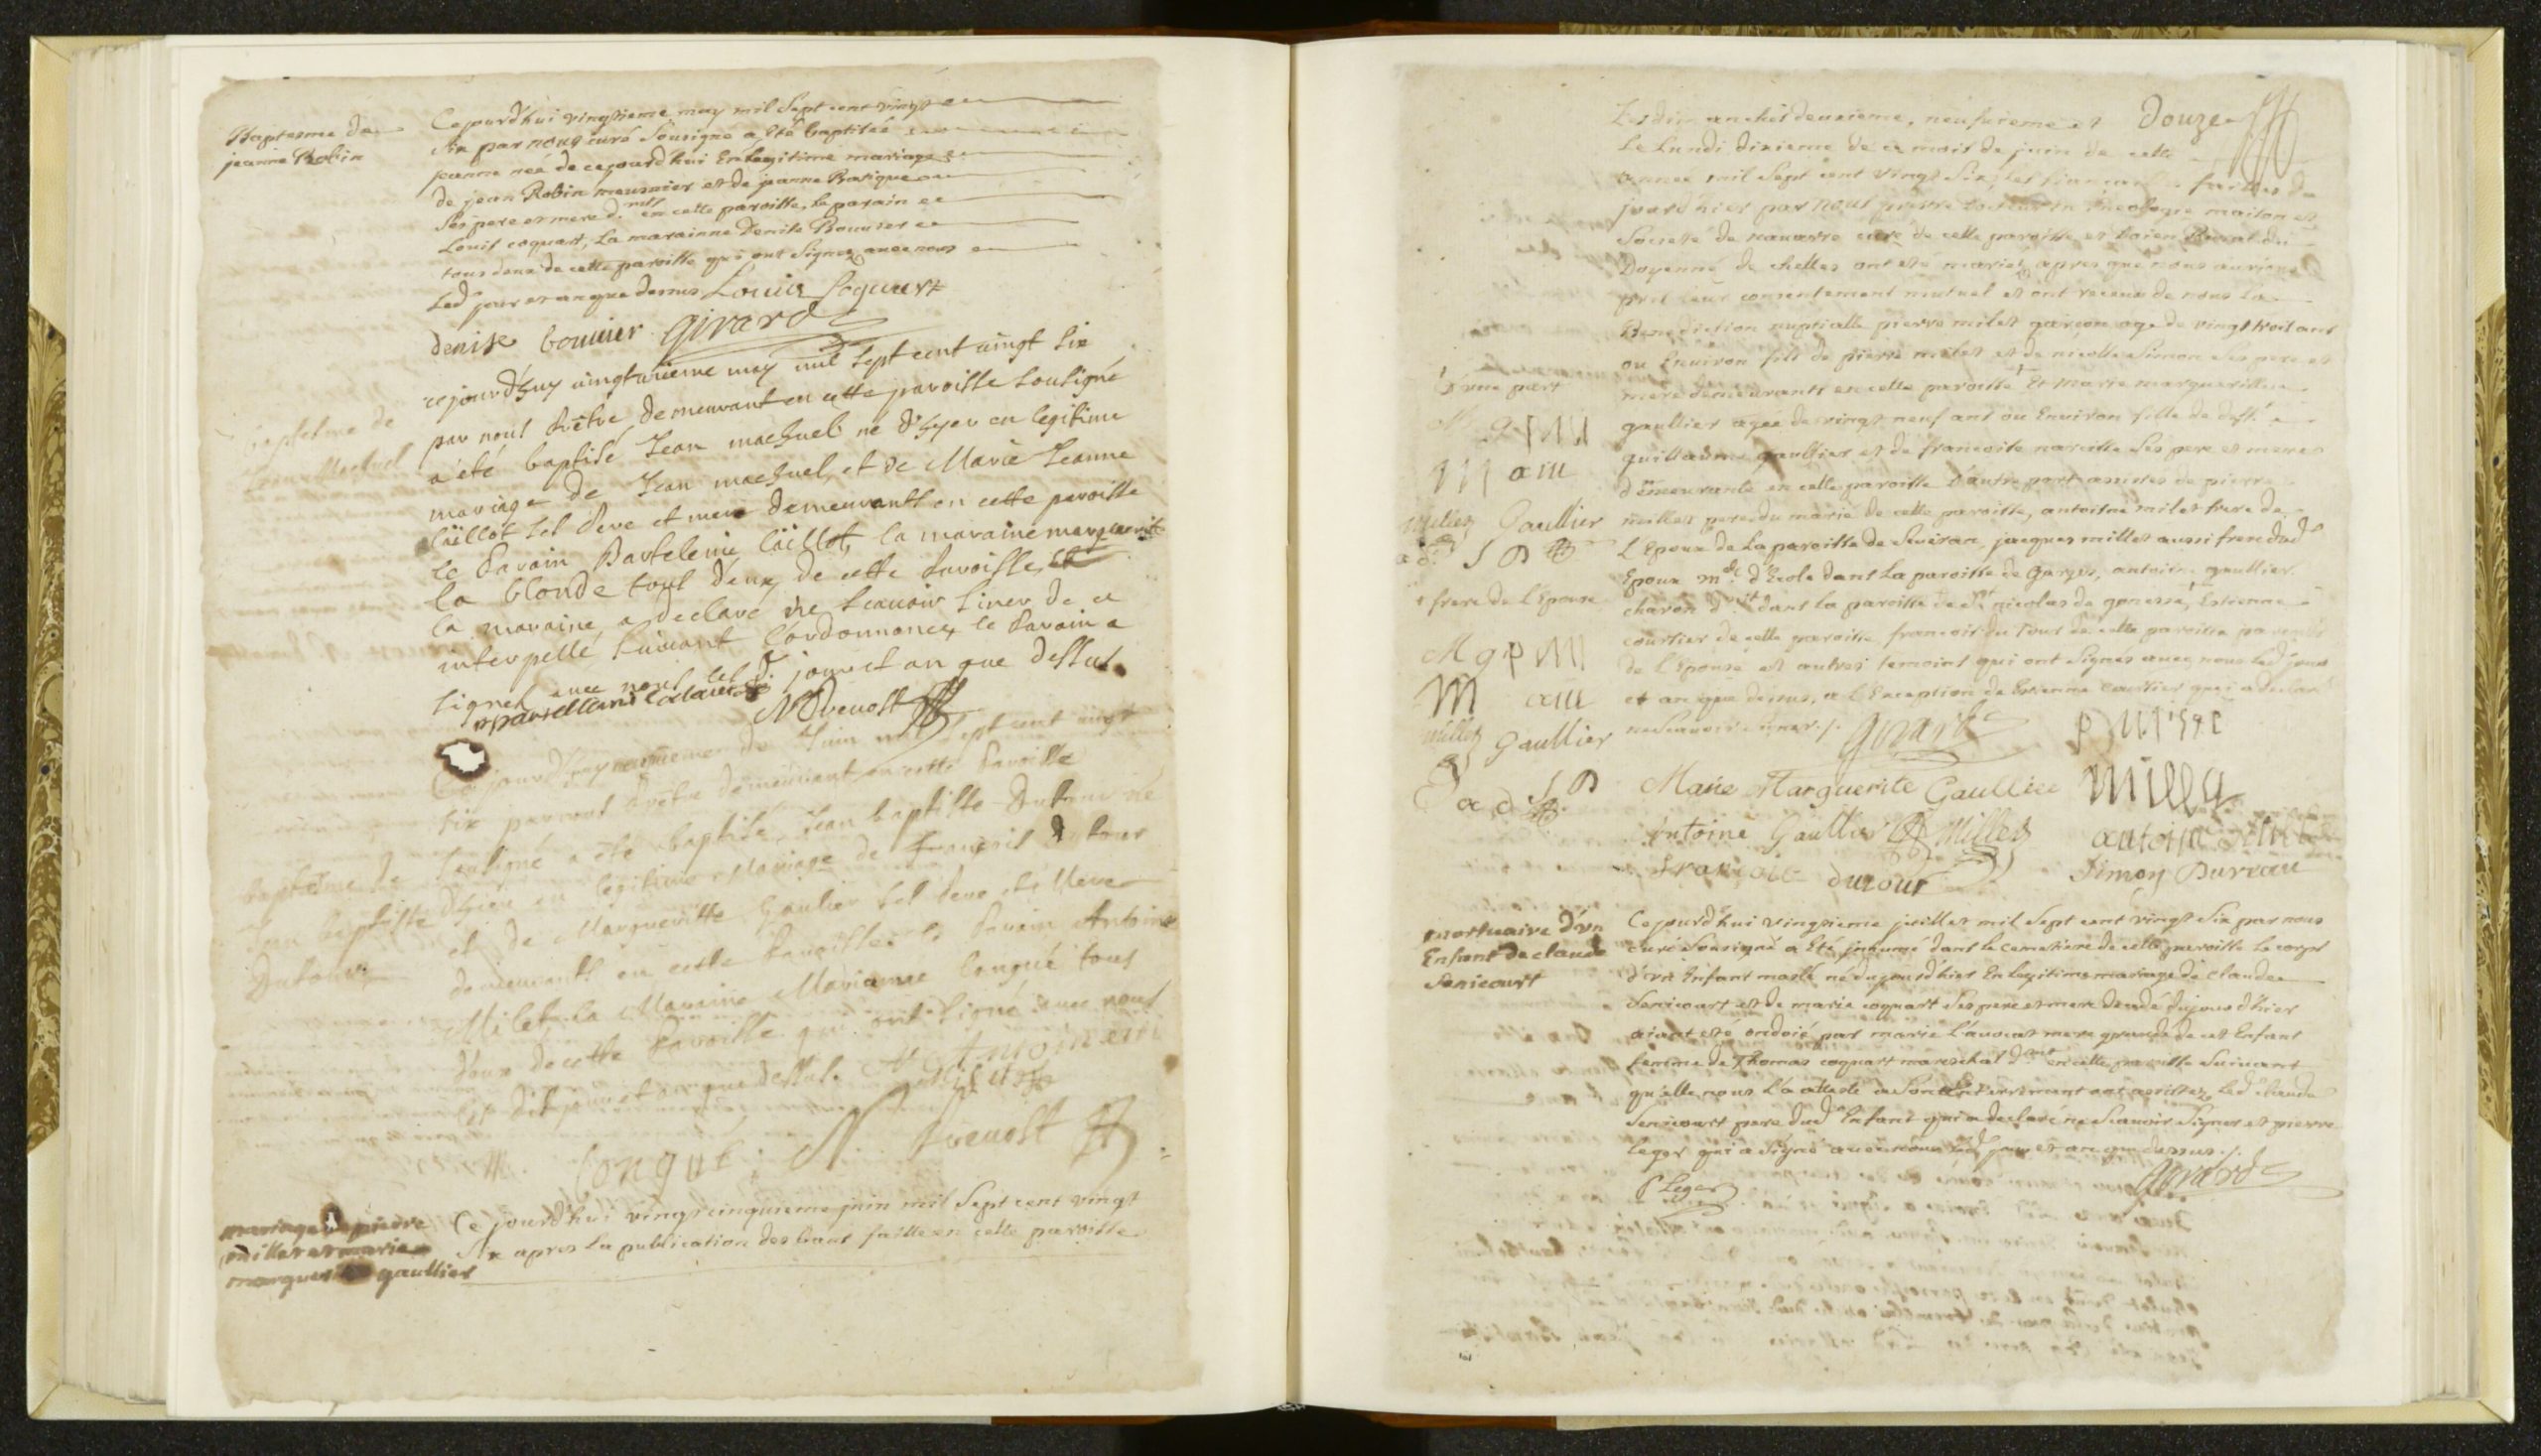 Baptesme de
jeanne Robin
Cejourd'hui vingtieme may mil sept cent vingt
six par nous curé sousigné a été baptisée
jeanne née de cejourd'hui En legitime mariage
de jean Robin meusnier et de jeanne Basique
ses pere et mere d.nts en cette paroisse, le parain
Louis coquart, La marainne Denise Bouvier
tous deux de cette paroisse qui ont signez avec nous
Led jour et an que dessus Louis Coquart
denise bouvier Girard
baptesme de
Jean Machuel
cejourd'huy vingtunieme may mil sept cent vingt six
par nous Prêtre demeurant en cette paroisse sousigné
a été baptisé Jean machuel né d'hyer en legitime
mariage de Jean machuel et de Marie Jeanne
Caillot ses Pere et mere demeurants en cette paroisse
le Parain Bartelemie Caillot, la maraine marguerite
la blonde tous deux de cette Paroisse, et
la maraine a declaré ne scavoir siner de ce
interpellé suivant l'ordonnance, le Parain a
signé avec nous les d. jour et an que dessus
N Prevost
baptême de
Jean baptiste
Dutour
Ce jourd'huy neufieme de Juin mil sept cent vingt
six par nous Prêtre demeurant en cette Paroisse
sousigné a été baptisé Jean baptiste Dutour né
d'hier en legitime Mariage de François Dutour
et de Margueritte Gaulier ses Pere et Mere
demeurants en cette Paroisse. le Parain Antoine
Milet, la Maraine Marianne Longué tous
deux de cette Paroisse qui ont signé avec nous
les dit jour et an que dessus. Antoine mi
let
M. Longué N Prevost
mariage de pierre
millet et marie
marguerite gaullier
Ce jourd'hui vingt cinquieme juin mil sept cent vingt
six apres La publication des bans faitte en cette paroisse
Douze
Les dimanches deuxieme, neufvieme et
Le Lundi dixieme de ce mois de juin de cette
année mil sept cent vingt six, les fiancailles faittes du
jourd'hier par nous prestre docteur en theologie maison et
Societté de navarre curé de cette paroisse et Doien Rural du
Doyenné de chelles ont été mariez apres que nous aurions
pris leur consentement mutuel et ont receus de nous La
Benediction nuptialle pierre milet garçon agé de vingt trois ans
ou Environ fils de pierre milet et de nicolle Simon ses pere et
mere demeurants en cette paroisse Et Marie marguerite
D'une part
gaullier agée de vingt neuf ans ou Environ fille de deff.
guillaume gaullier et de francoise ses pere et mere
demeurante en cette paroisse D'autre part assistés de pierre
millet pere du marié de cette paroisse, antoine milet frere de
L'Epoux de La paroisse de Sevran, jacques millet aussi frere dud
Epoux m.e d'Ecole dans La paroisse de Garges, antoine gaullier
charon d.nt dans la paroisse de St nicolas de gonesse, Estienne
frere de l'Epouse
courtier de cette paroisse francois du Tour de cette paroisse
de l'Epouse et autres temoins qui ont signés avec nous Led jour
et an que dessus, a l'Exception de Estienne courtier qui a declaré
ne scavoir siner. Girard
M g p M
M am
millet Gaullier
a d S B
Marie Marguerite Gaullier milla
Antoine Gaullier Millet antoine milet
francois dutour Simon Bureau
mortuaire d'un
Enfant de claude
Senicourt
Cejourd'hui vingtieme juillet mil sept cent vingt six par nous
curé sousigné a été inhumé dans le cemetiere de cette paroisse le corps
d'un Enfant masle né du jourd'hier En legitime mariage de claude
Senicourt et de marie coquart ses pere et mere decedé du jourd'hier
aiant été ondoié par marie L'avocat mere grande de cet Enfant
femme de Thomas coquart mareschal d.nt en cette paroisse suivant
qu'elle nous l'a attesté a son Enterrement ont assistez Led claude
Senicourt pere dud Enfant qui a declaré ne scavoir signer et pierre
Leger qui a signé avec nous Led jour et an que dessus.
P Leger Girard